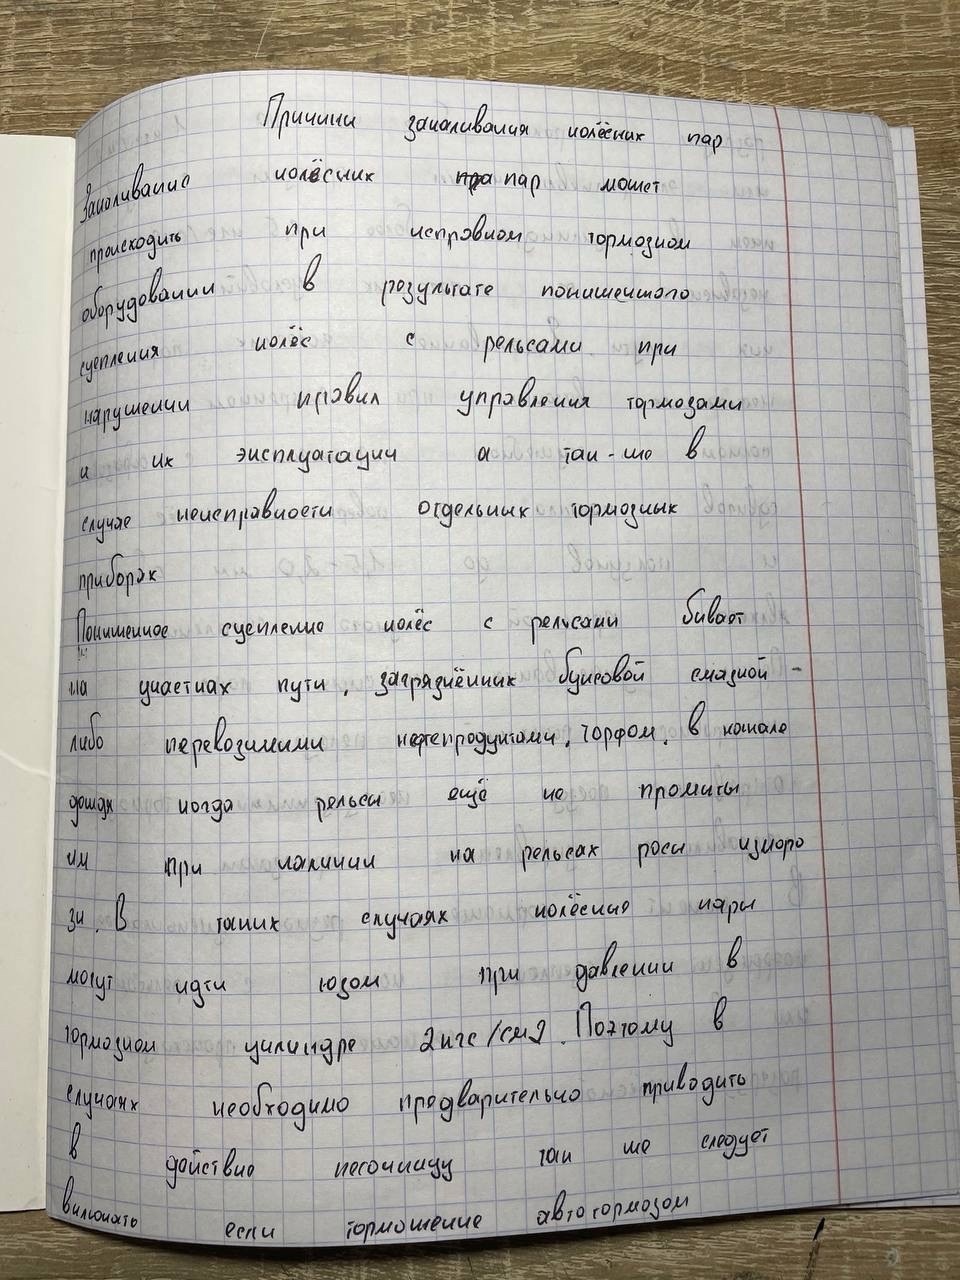 Причини заклинивания колёсних пар
Заклинивание колёсник пар может
происходить при исправном тормозном
оборудовании в результате пониженного
сцепления колёс с рельсами при
нарушении правил управления тормозами
и их эксплуатации а так-же в
случае неисправности отдельных тормозных
приборах
Пониженное сцепление колёс с рельсами бивает
на участках пути, загрязнённик буксовой смазкой-
либо перевозимими нефтепродуктами, торфом, в начале
дождя когда рельси ещё не промиты
им при наличии на рельсах роси изморо
зи. В таких случаях колёсния пари
могут идти юзом при давлении в
тормозном цилиндре 2кгс/см2. Поэтому в
случаях необходимо предварительно приводить
в действие песочницу так же следует
включать если торможение автотормозом